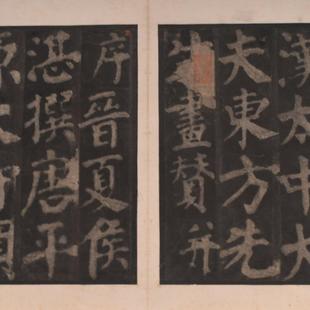 漢太中大
夫東方先
生畫賛并
序晉夏侯
湛撰唐平